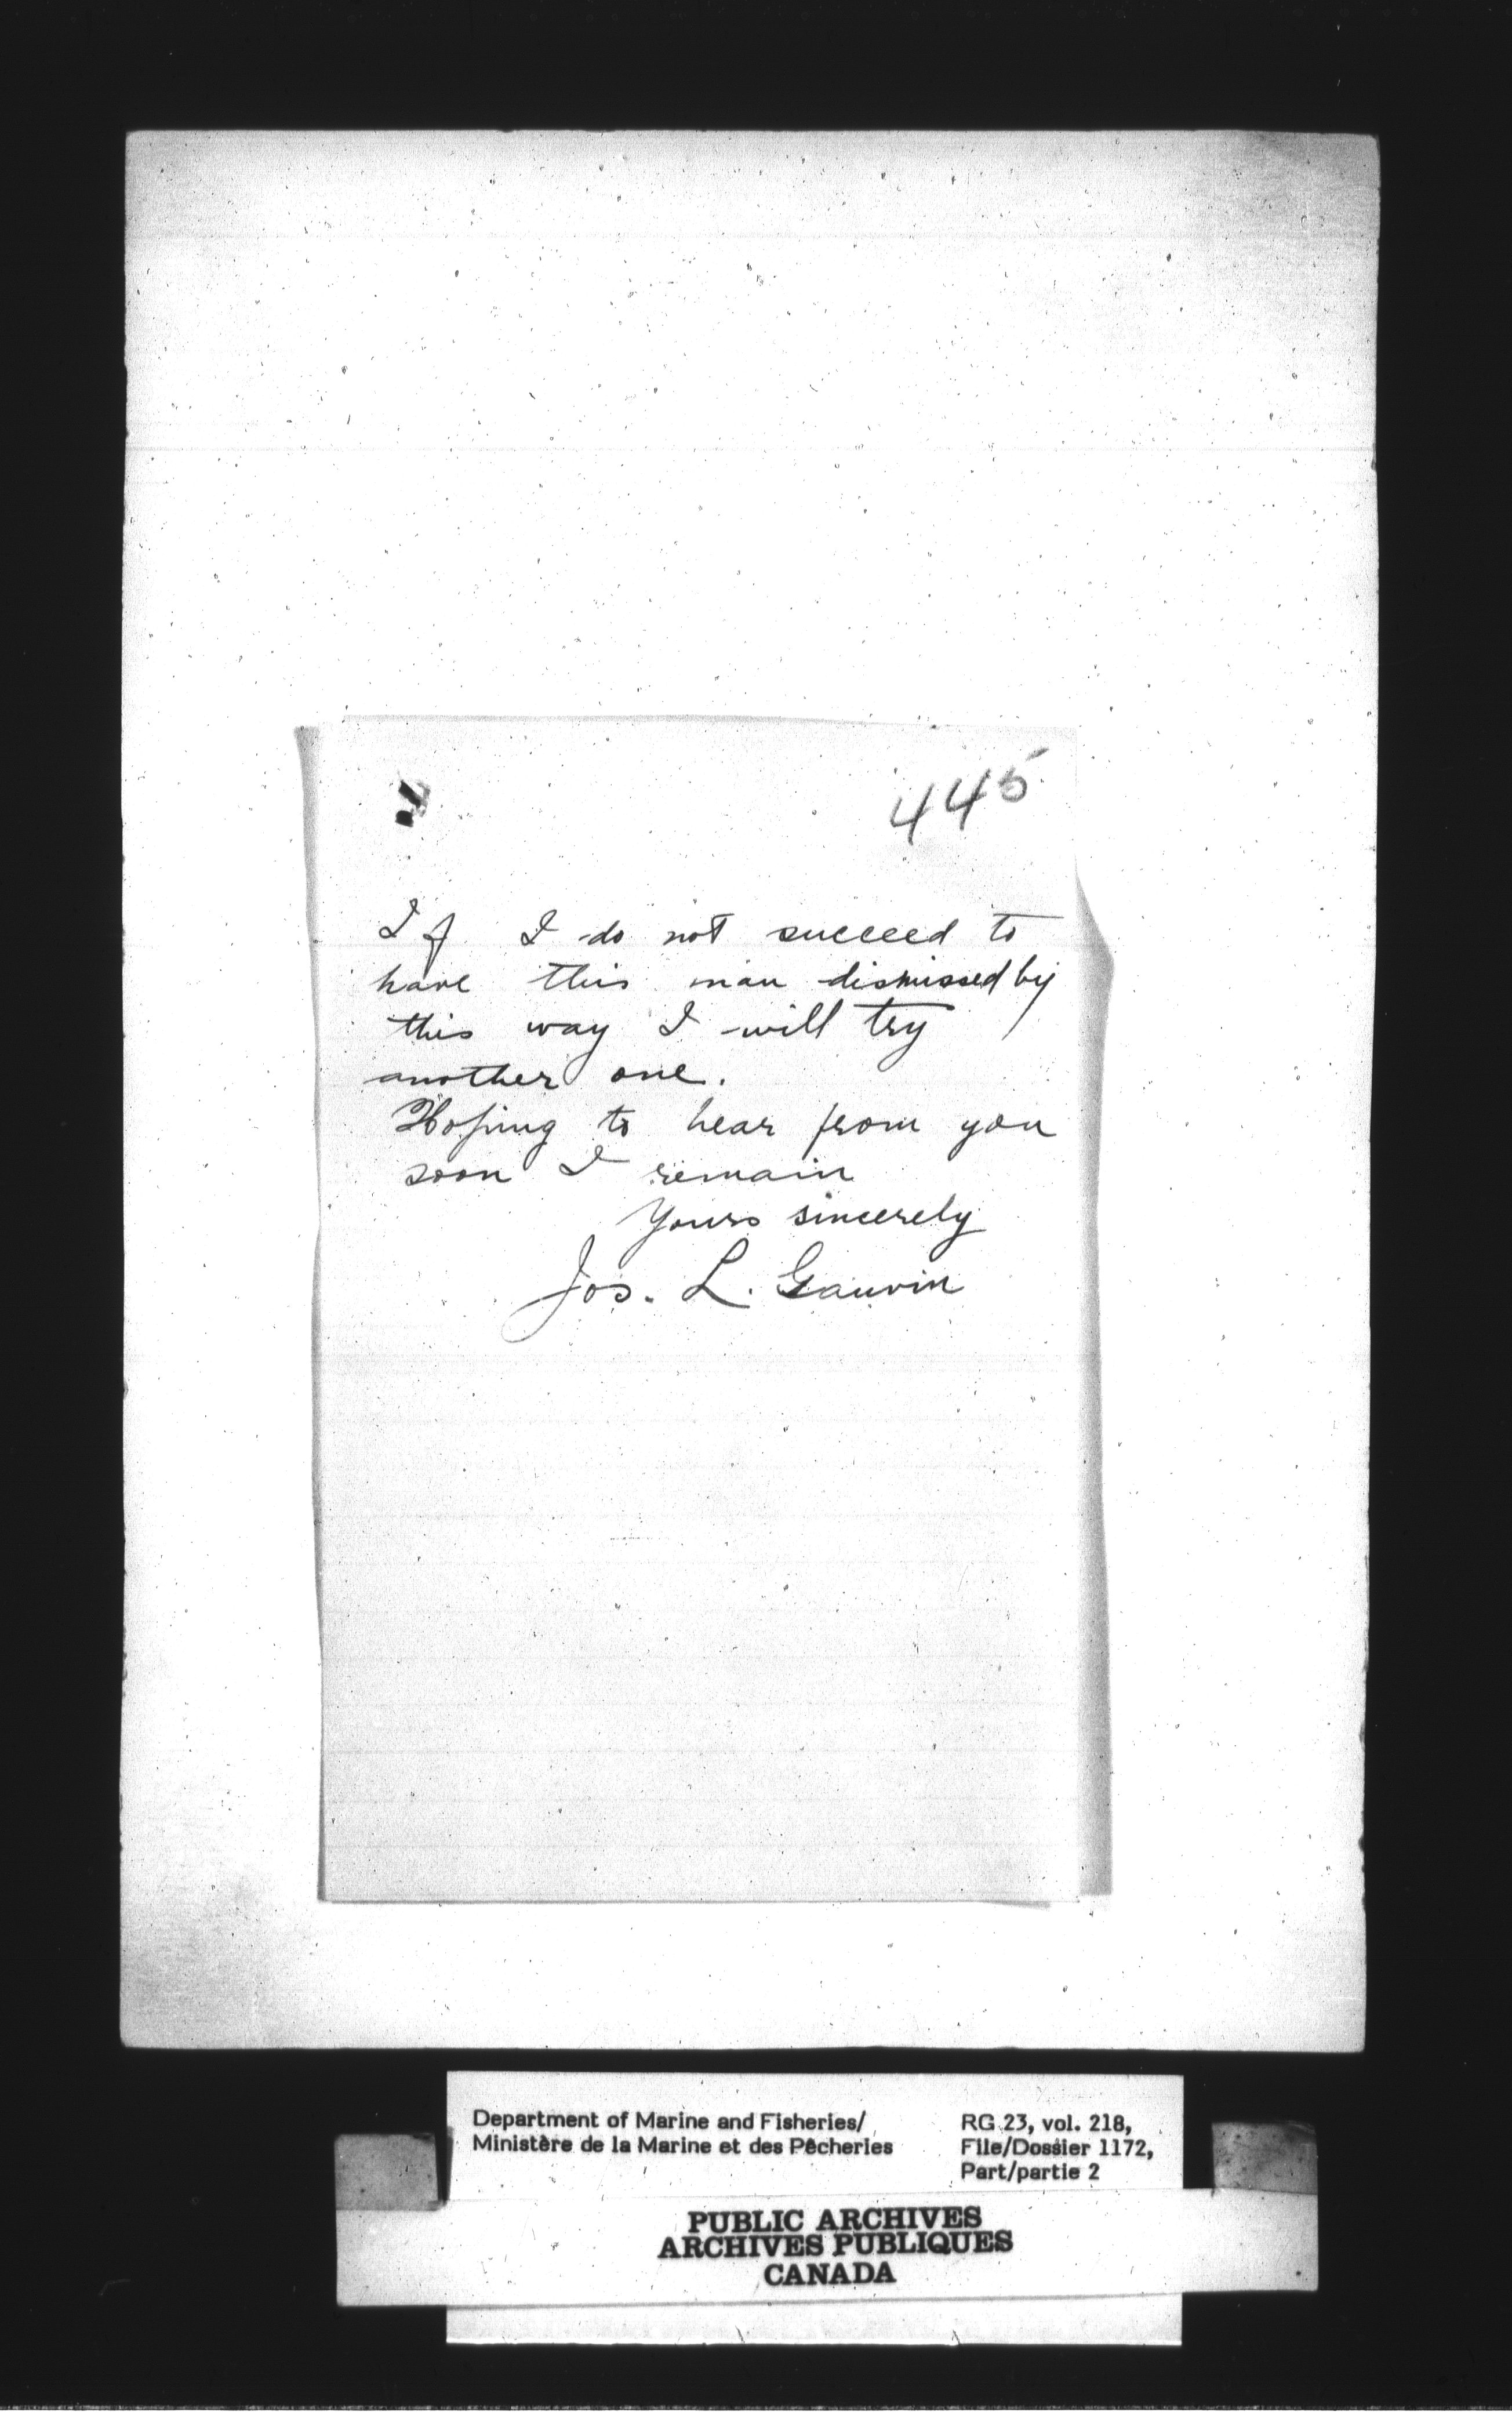 445
If I do not succeed to
have this man dismissed by
this way I will try
another one.
Hoping to hear from you
soon I remain
Yours sincerely
Jos. L. Gauvin
Department of Marine and Fisheries/
Ministère de la Marine et des Pêcheries
RG 23, vol. 218,
File/Dossier 1172,
Part/partie 2
PUBLIC ARCHIVES
ARCHIVES PUBLIQUES
CANADA